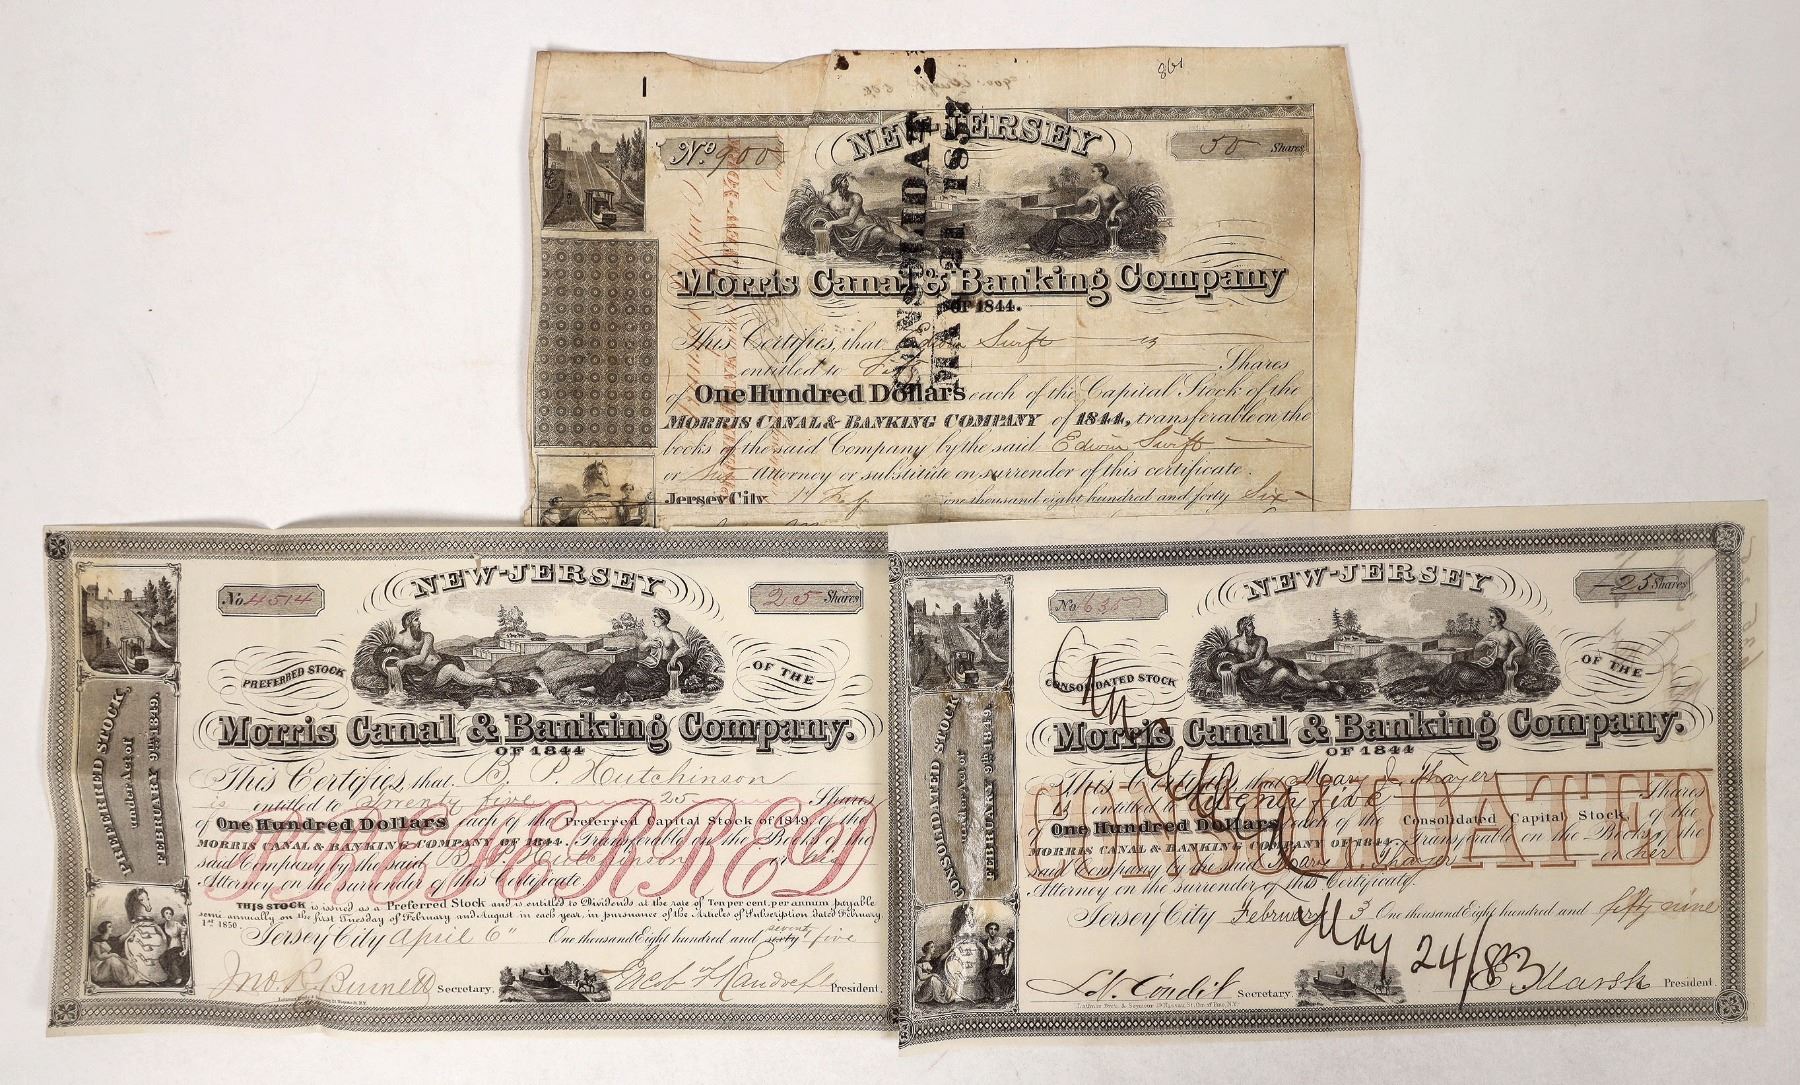 861
NEW JERSEY
No 900
50 Shares
CONSOLIDAT
Morris Canal & Banking Company
OF 1844.
This Certifies, that Edwin Swift
entitled to Fifty Shares
of One Hundred Dollars each of the Capital Stock of the
MORRIS CANAL & BANKING COMPANY of 1844, transferable on the
books of the said Company by the said Edwin Swift
or his Attorney or substitute on surrender of this certificate.
Jersey City, one thousand eight hundred and forty Six
NEW-JERSEY
No 4514
25 Shares
PREFERRED STOCK OF THE
Morris Canal & Banking Company.
OF 1844
PREFERRED STOCK,
under Act of
FEBRUARY 9th 1849.
This Certifies, that B. P. Hutchinson
is entitled to Twenty five 25 Shares
of One Hundred Dollars each of the Preferred Capital Stock of 1849, of the
MORRIS CANAL & BANKING COMPANY OF 1844. Transferable on the Books of the
said Company by the said B. P. Hutchinson or his
Attorney on the surrender of this Certificate
PREFERRED
THIS STOCK is issued as a Preferred Stock and is entitled to Dividends at the rate of Ten per cent, per annum payable
semi-annually on the first Tuesday of February and August in each year, in pursuance of the Articles of Subscription dated February
1st 1850.
Jersey City April 6" One thousand Eight hundred and sixty seventy five
Secretary.
President.
NEW-JERSEY
No 635
25 Shares
CONSOLIDATED STOCK OF THE
Morris Canal & Banking Company.
OF 1844
CONSOLIDATED STOCK
under Act of
FEBRUARY 9th 1849.
This Certifies, that Mary I. Thayer
is entitled to Twenty five Shares
of One Hundred Dollars each of the Consolidated Capital Stock, of the
MORRIS CANAL & BANKING COMPANY OF 1844. Transferable on the Books of the
said Company by the said Mary I. Thayer or her
Attorney on the surrender of this Certificate.
CONSOLIDATED
Jersey City February 3 One thousand Eight hundred and fifty nine
May 24/83
Secretary.
E Marsh President.